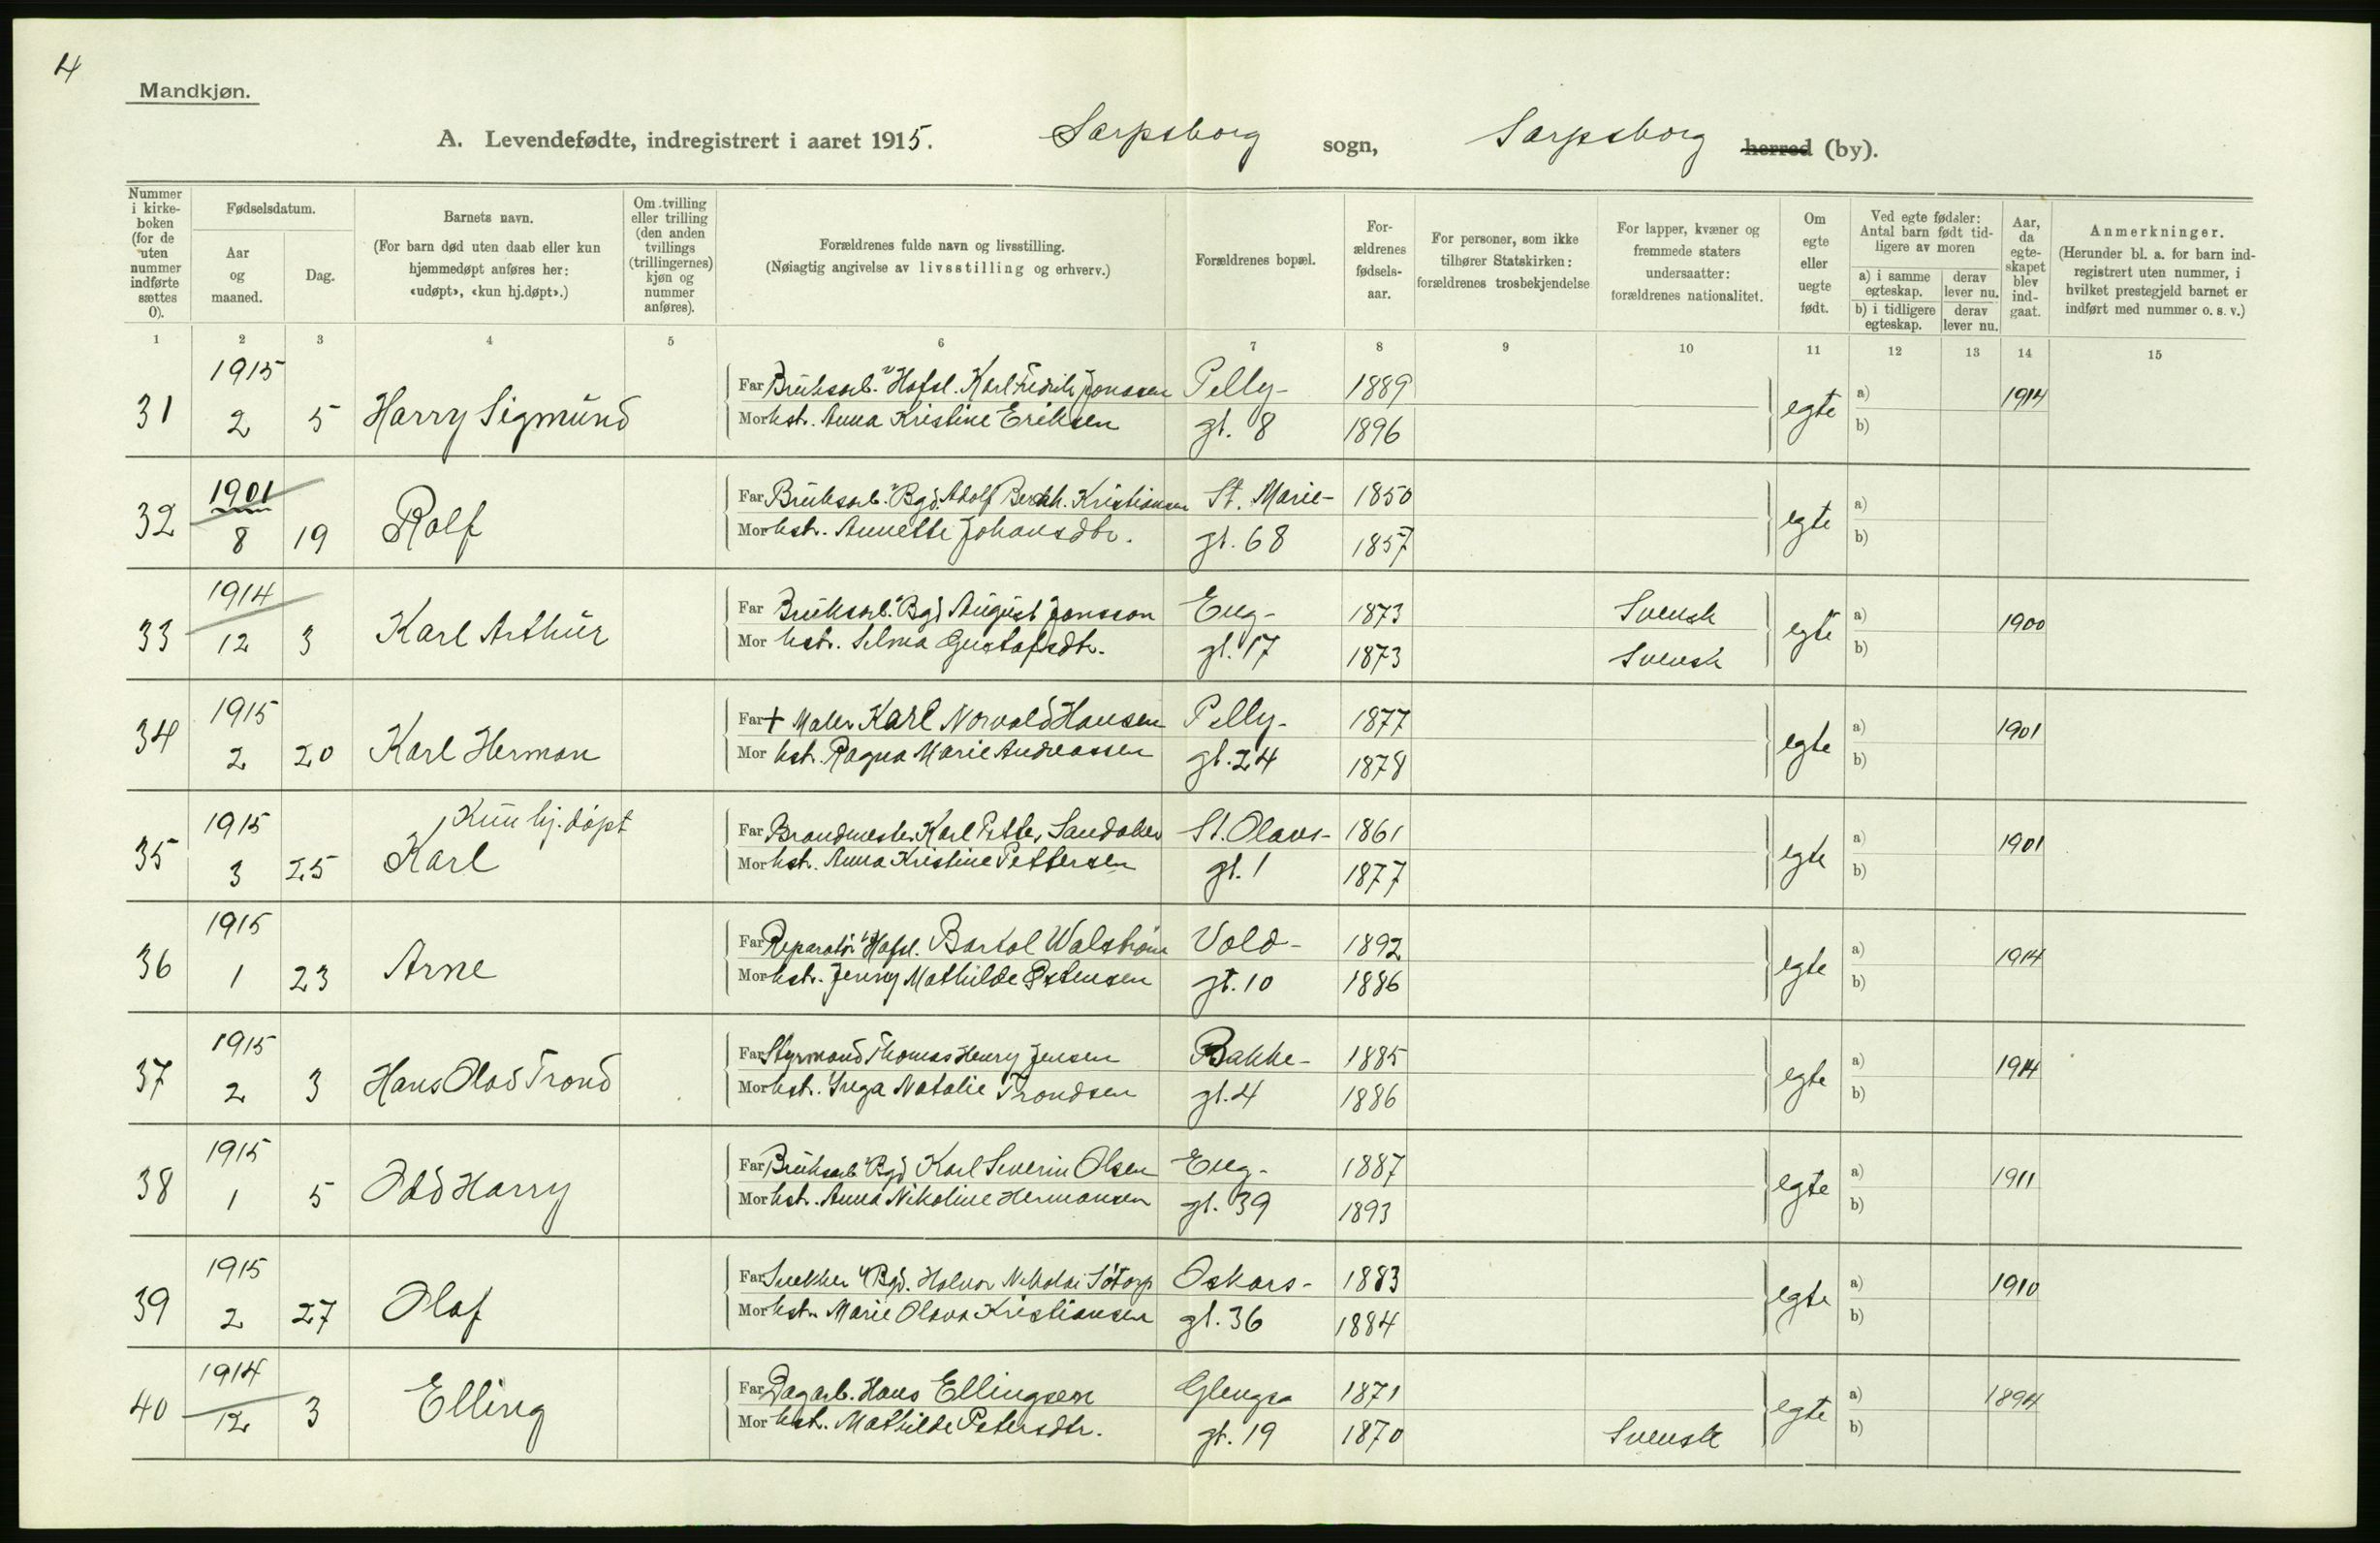 4
Mandkjøn.
A. Levendefødte, indregistrert i aaret 1915. Sarpsborg sogn, Sarpsborg herred (by).
Nummer i kirkeboken (for de uten nummer indførte sættes 0).
Fødselsdatum.
Aar og maaned.
Dag.
Barnets navn.
(For barn død uten daab eller kun hjemmedøpt anføres her: «udøpt», «kun hj.døpt».)
Om tvilling eller trilling (den anden tvillings (trillingernes) kjøn og nummer anføres).
Forældrenes fulde navn og livsstilling.
(Nøiagtig angivelse av livsstilling og erhverv.)
Forældrenes bopæl.
Forældrenes fødselsaar.
For personer, som ikke tilhører Statskirken: forældrenes trosbekjendelse
For lapper, kvæner og fremmede staters undersaatter: forældrenes nationalitet.
Om egte eller uegte født.
Ved egte fødsler: Antal barn født tidligere av moren
a) i samme egteskap. derav lever nu.
b) i tidligere egteskap. derav lever nu.
Aar, da egteskapet blev indgaat.
Anmerkninger.
(Herunder bl. a. for barn indregistrert uten nummer, i hvilket prestegjeld barnet er indført med nummer o. s. v.)
1 2 3 4 5 6 7 8 9 10 11 12 13 14 15
1915
31 2 5 Harry Sigmund
Far Bruksarb. v Hafsl. Karl Fredrik Jonssen Pelly- 1889 egte a) 1914
Mor hst. Anna Kristine Eriksen gt. 8 1896 b)
1901
32 8 19 Rolf
Far Bruksarb. v Bgd. Adolf Kristiansen St. Marie- 1850 egte a)
Mor hst. Annette Johansdtr. gt. 68 1857 b)
1914
33 12 3 Karl Arthur
Far Bruksarb. v Bgd August Jonsson Eng- 1873 Svensk egte a) 1900
Mor hst. Selma Gustafsdtr. gt. 17 1873 Svensk b)
1915
34 2 20 Karl Herman
Far + Maler Karl Norvald Hansen Pelly- 1877 egte a) 1901
Mor hst. Ragna Marie Andreassen gt. 24 1878 b)
1915 Kun hj. døpt
35 3 25 Karl
Far Brandmester Karl Petter Sandaker St. Olavs- 1861 egte a) 1901
Mor hst. Anna Kristine Pettersen gt. 1 1877 b)
1915
36 1 23 Arne
Far Reparatør v Hafsl. Bartol Walstrøm Vold- 1892 egte a) 1914
Mor hst. Jenny Mathilde Østensen gt. 10 1886 b)
1915
37 2 3 Hans Olav Trond
Far Styrmand Thomas Henry Jensen Bakke- 1885 egte a) 1914
Mor hst. Inga Natalie Trondsen gt. 4 1886 b)
1915
38 1 5 Odd Harry
Far Bruksarb v Bgd Karl Severin Olsen Eng- 1887 egte a) 1911
Mor hst. Anna Nikoline Hermansen gt. 39 1893 b)
1915
39 2 27 Olaf
Far Snekker v Bgd. Halvor Nikolai Søtorp Oskars- 1883 egte a) 1910
Mor hst. Marie Olava Kristiansen gt. 36 1884 b)
1914
40 12 3 Elling
Far Dagarb. Hans Ellingsen Glengsa 1871 egte a) 1894
Mor hst. Mathilde Petersdtr. gt. 19 1870 Svensk b)